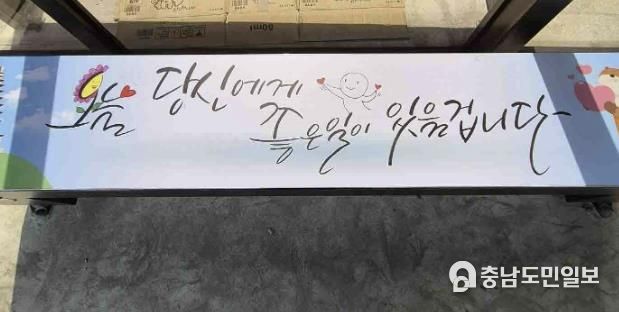 오늘 당신에게
좋은일이 있을겁니다
충남도민일보